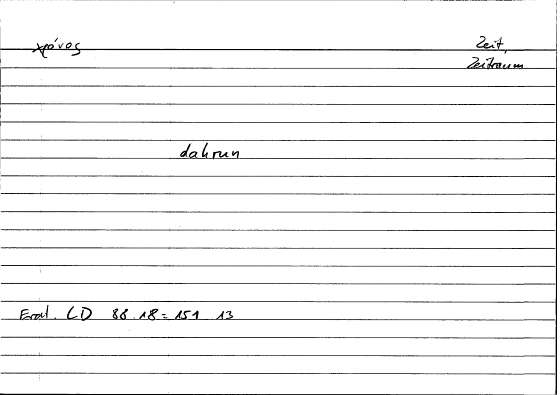 χρόνος Zeit,
Zeitraum
dahrun
CD 88 18 = 151 13